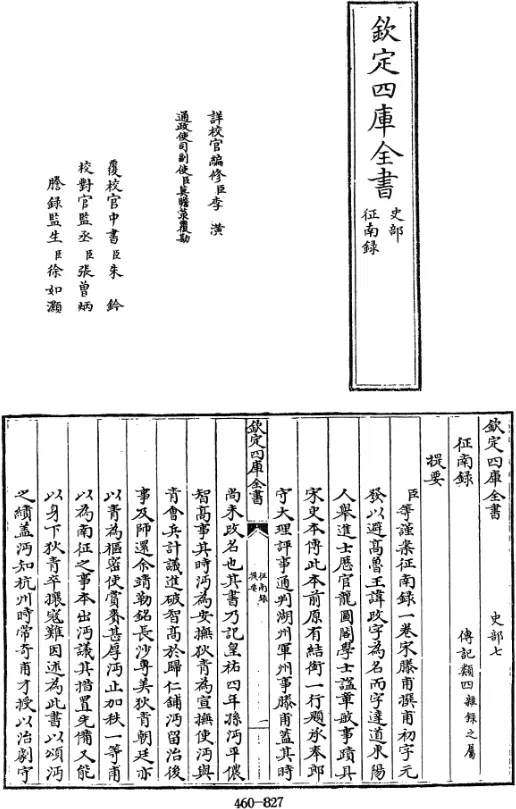 欽定四庫全書
史部
征南録
詳校官編修臣李潢
通政使司副使臣莫瞻菉覆勘
覆校官中書臣朱鈐
校對官監丞臣張曾炳
謄録監生臣徐如灝
欽定四庫全書 史部七
征南録 傳記類四雜録之屬
提要
臣等謹案征南録一卷宋滕甫撰甫初字元
發以避髙魯王諱改字為名而字達道東陽
人舉進士歷官龍圖閣學士諡章敏事蹟具
宋史本傳此本前原有結銜一行題承奉郎
守大理評事通判湖州軍州事滕甫蓋其時
欽定四庫全書
征南録
提要
一
尚未改名也其書乃記皇祐四年孫沔平儂
智髙事其時沔為安撫狄青為宣撫使沔與
青會兵計議進破智髙於歸仁鋪沔留治後
事及師還余靖勒銘長沙専美狄青朝廷亦
以青為樞密使賞賚甚厚沔止加秩一等甫
以為南征之事本出沔議其措置先備又能
以身下狄青卒攘寇難因述為此書以頌沔
之績蓋沔知杭州時常竒甫才授以治劇守
460—827